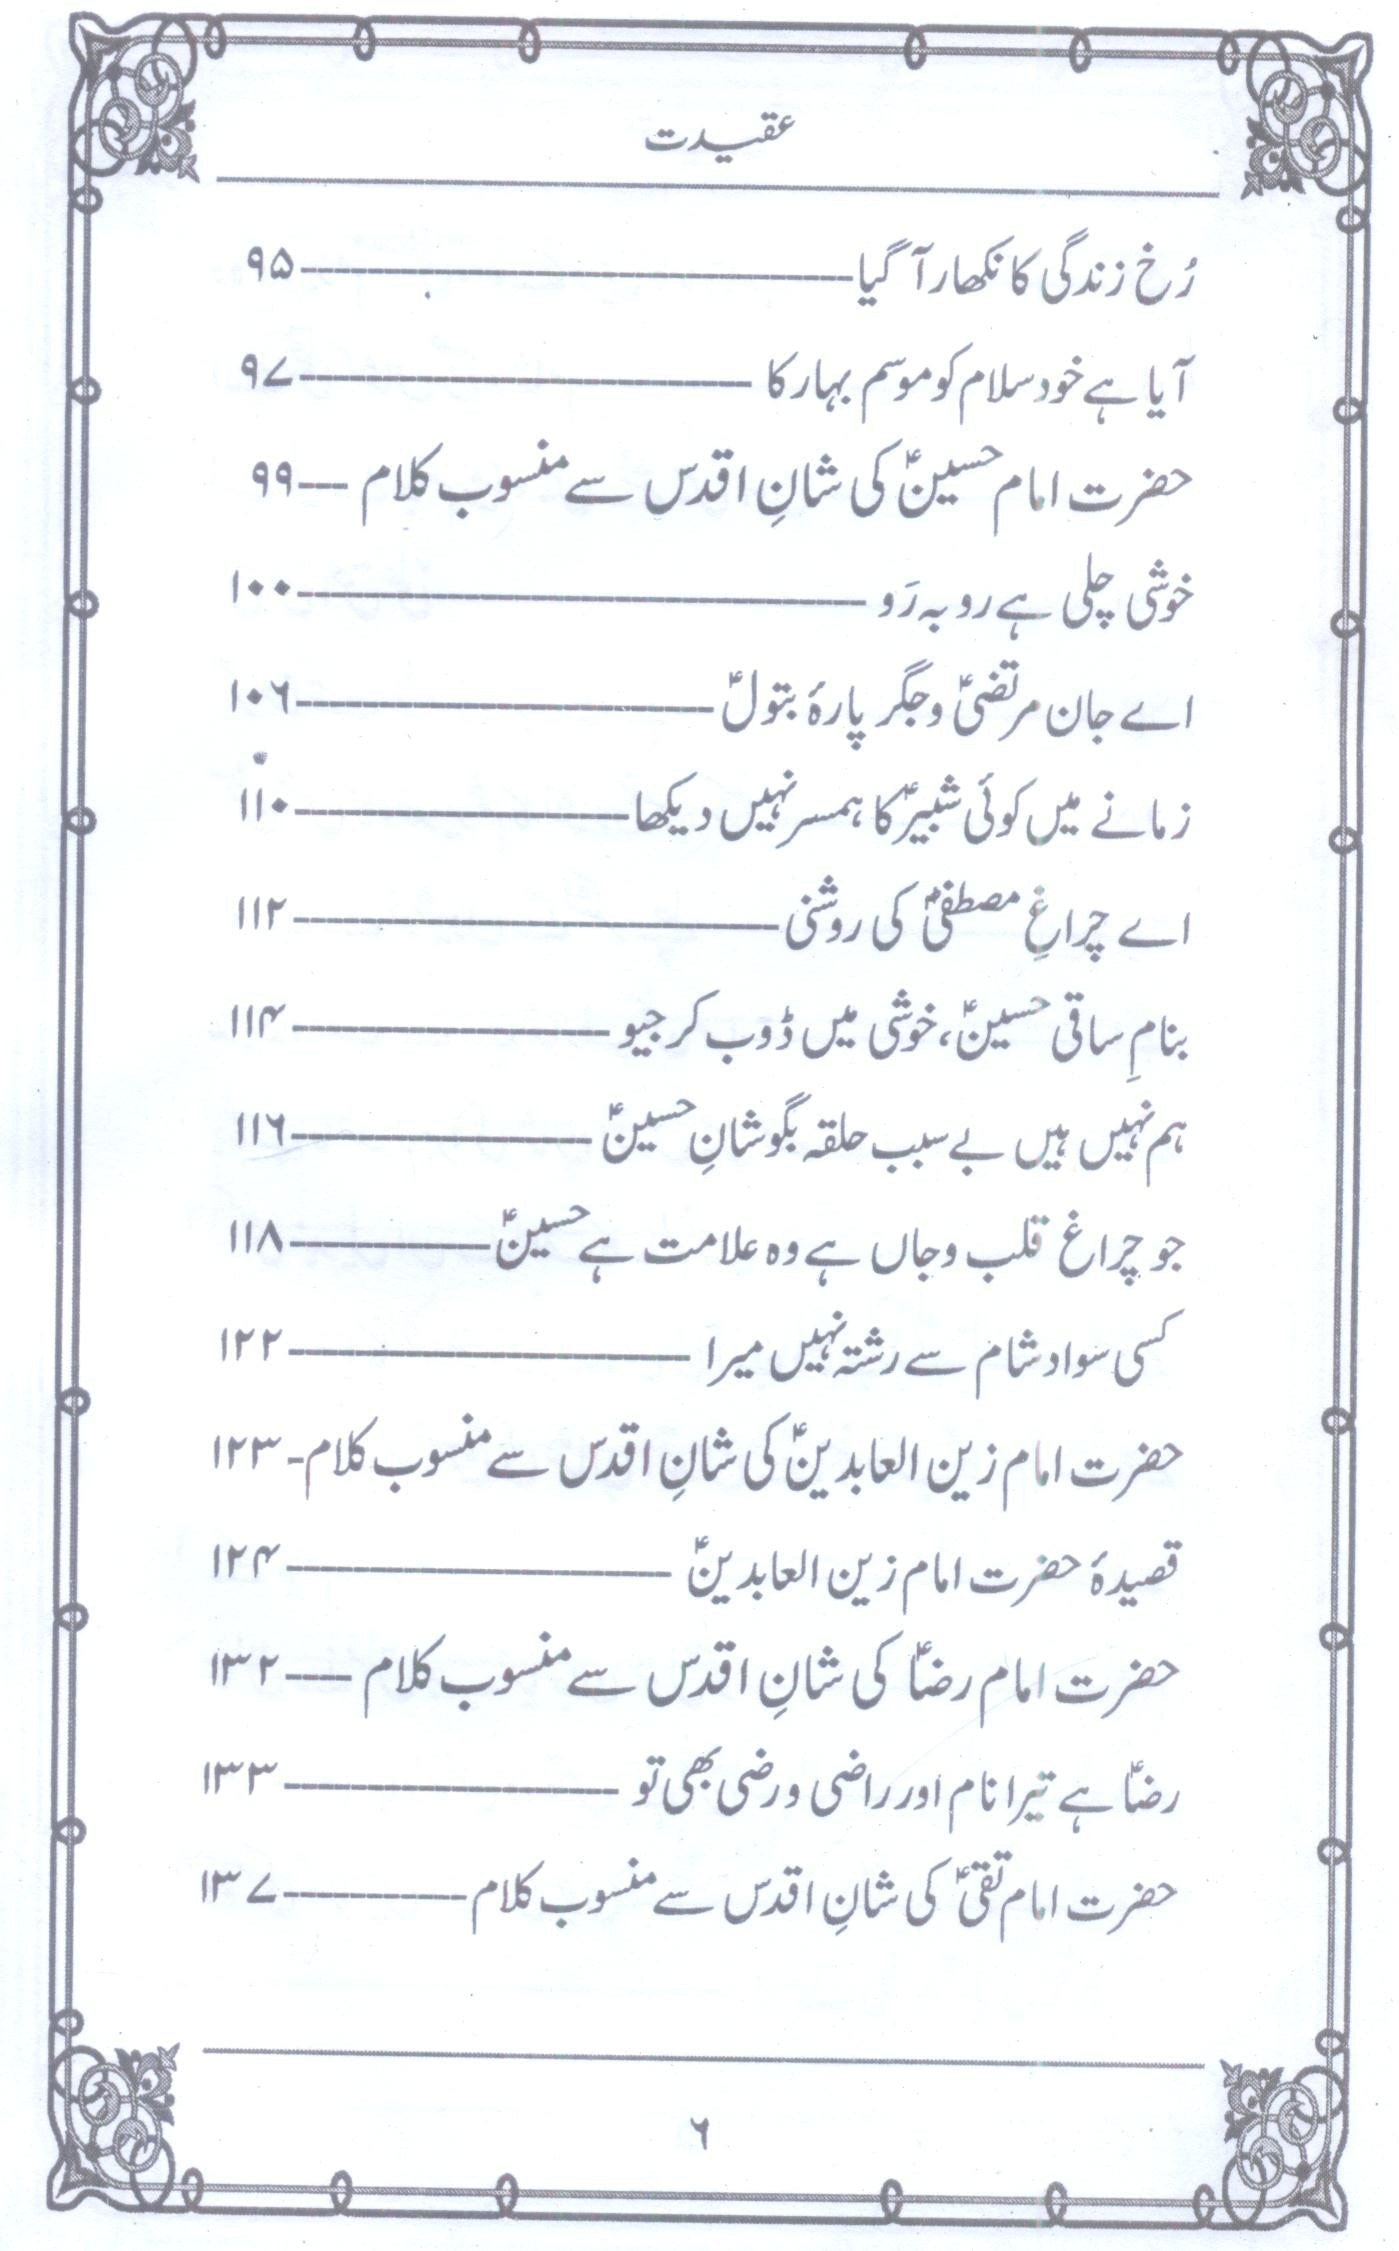 عقیدت
رُخ زندگی کا نکھار آ گیا ــــــ ۹۵
آیا ہے خود سلام کو موسم بہار کا ــــــ ۹۷
حضرت امام حسینؑ کی شانِ اقدس سے منسوب کلام ــــــ ۹۹
خوشی چلی ہے رو بہ رَو ــــــ ۱۰۰
اے جان مرتضیؑ و جگر پارۂ بتولؑ ــــــ ۱۰۶
زمانے میں کوئی شبیرؑ کا ہمسر نہیں دیکھا ــــــ ۱۱۰
اے چراغِ مصطفیؐ کی روشنی ــــــ ۱۱۲
بنامِ ساقی حسینؑ، خوشی میں ڈوب کر جیو ــــــ ۱۱۴
ہم نہیں ہیں بے سبب حلقہ بگوشانِ حسینؑ ــــــ ۱۱۶
جو چراغ قلب و جاں ہے وہ علامت ہے حسینؑ ــــــ ۱۱۸
کسی سواد شام سے رشتہ نہیں میرا ــــــ ۱۲۲
حضرت امام زین العابدینؑ کی شانِ اقدس سے منسوب کلام ـ ۱۲۳
قصیدۂ حضرت امام زین العابدینؑ ــــــ ۱۲۴
حضرت امام رضاؑ کی شانِ اقدس سے منسوب کلام ــــــ ۱۳۲
رضاؑ ہے تیرا نام اور راضی و رضی بھی تو ــــــ ۱۳۳
حضرت امام تقیؑ کی شانِ اقدس سے منسوب کلام ــــــ ۱۳۷
۶